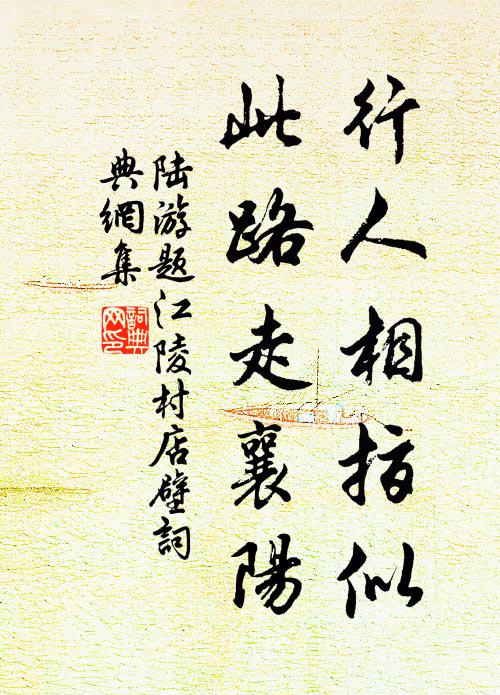 行人相指似
此路走襄陽
陸游题江陵村店壁詞
典網集
詞典网印